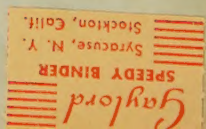 Gaylord
SPEEDY BINDER
Syracuse, N. Y.
Stockton, Calif.